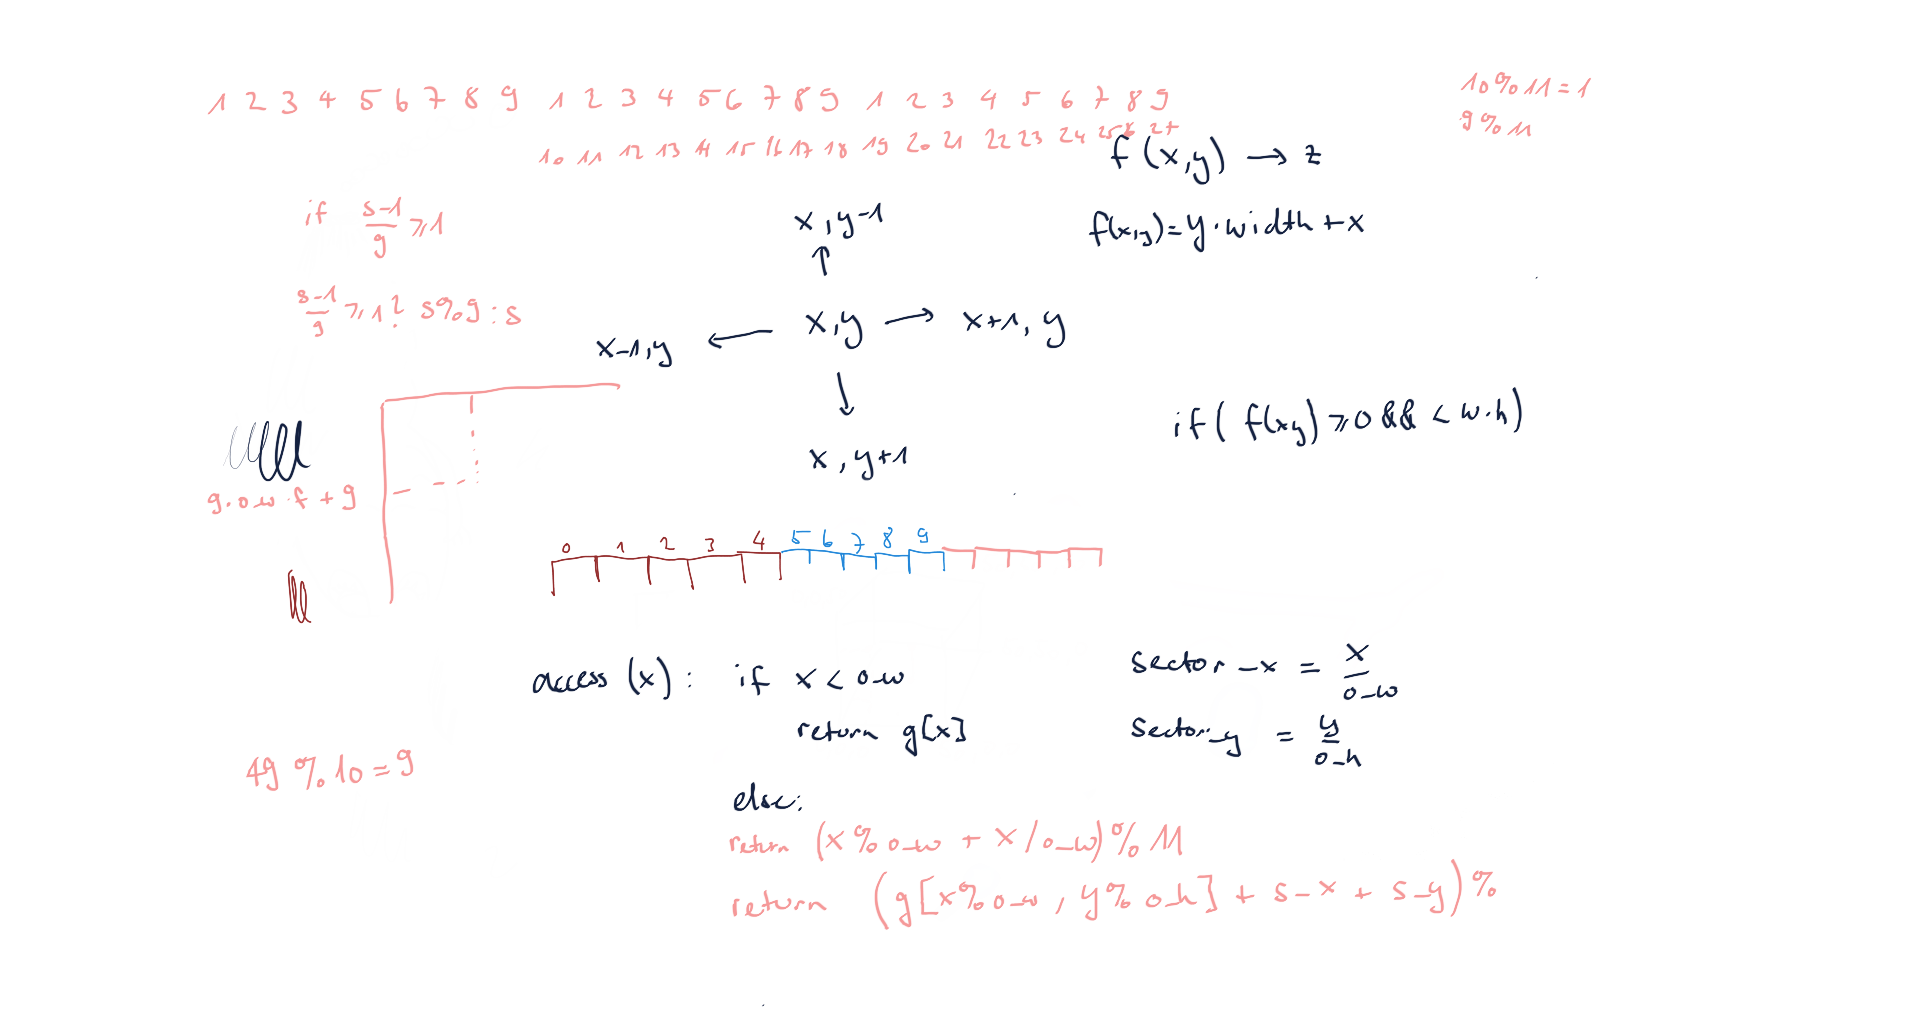 1 2 3 4 5 6 7 8 9 1 2 3 4 5 6 7 8 9 1 2 3 4 5 6 7 8 9
10 11 12 13 14 15 16 17 18 19 20 21 22 23 24 25 26 27
10 % 11 = 1
9 % 11
f (x,y) → z
f(x,y) = y · width + x
if s-1/9 ≥ 1
s-1/9 ≥ 1 ? s%9 : s
x, y-1
↑
x-1, y ← x, y → x+1, y
↓
x, y+1
if ( f(x,y) ≥ 0 && < w·h )
9·o_w·f + 9
0 1 2 3 4 5 6 7 8 9
access (x): if x < o_w
return g[x]
else:
return (x % o_w + x / o_w) % 11
return (g[x % o_w, y % o_h] + s_x + s_y) %
sector_x = x/o_w
sector_y = y/o_h
49 % 10 = 9